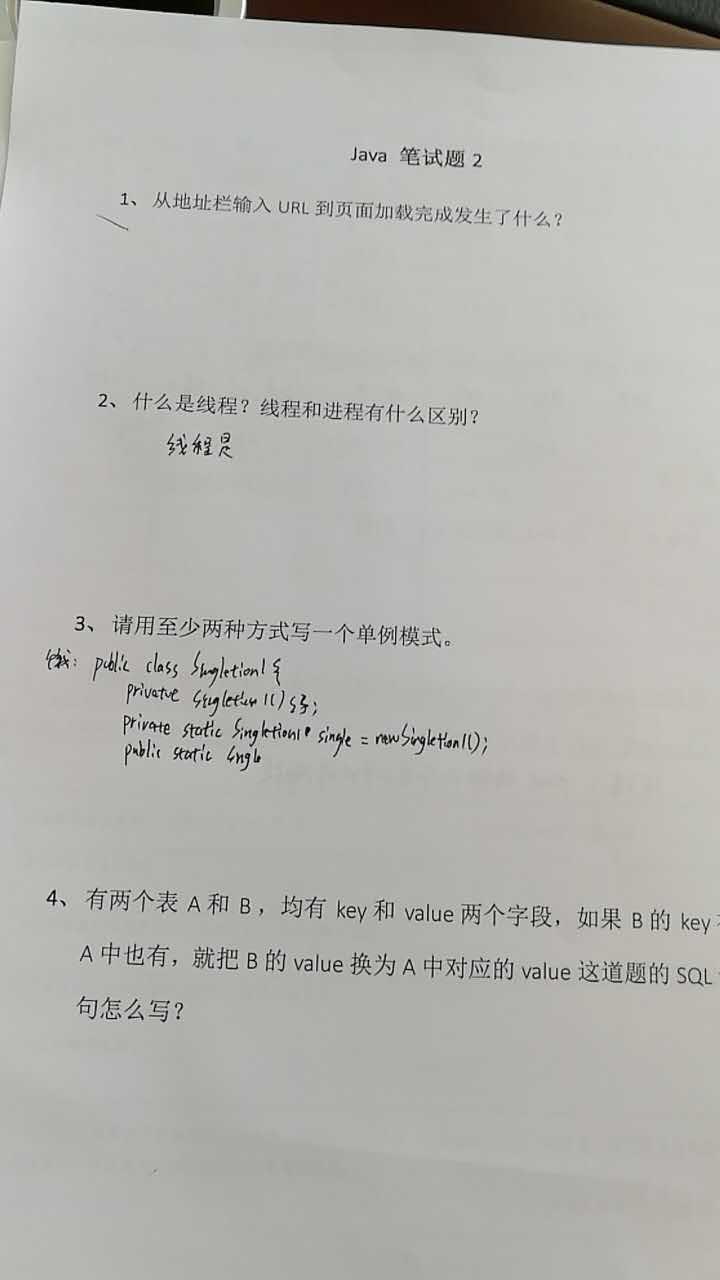 Java 笔试题 2
1、 从地址栏输入 URL 到页面加载完成发生了什么？
2、 什么是线程？线程和进程有什么区别？
线程是
3、 请用至少两种方式写一个单例模式。
public class Singletion1 {
private Singletion1() {};
private static Singletion1 single = new Singletion1();
public static
4、 有两个表 A 和 B，均有 key 和 value 两个字段，如果 B 的 key
A 中也有，就把 B 的 value 换为 A 中对应的 value 这道题的 SQL
句怎么写？